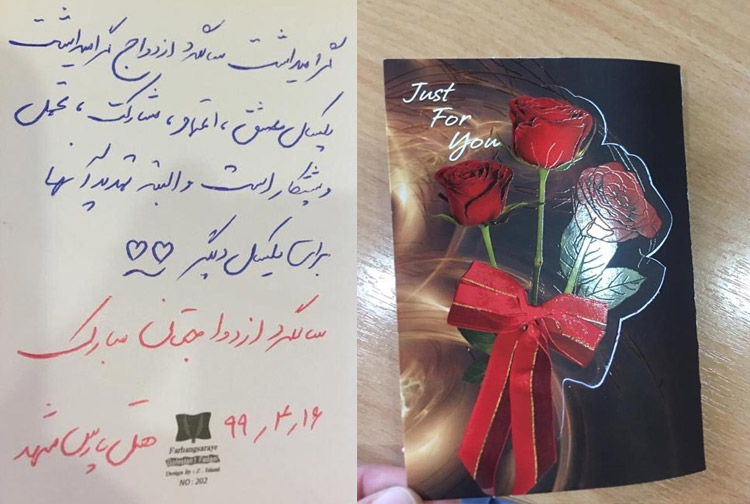 گرامیداشت سالگرد ازدواج گرامیداشت
یکسال عشق، اعتماد، مشارکت، تحمل
و پشتکار است و البته تمدید آنها
برای یکسال دیگر
سالگرد ازدواجتان مبارک
۹۹٫۴٫۱۶
هتل پارس مشهد
Farhangsaraye
Design By : Z . Irani
NO: 202
Just
For
You